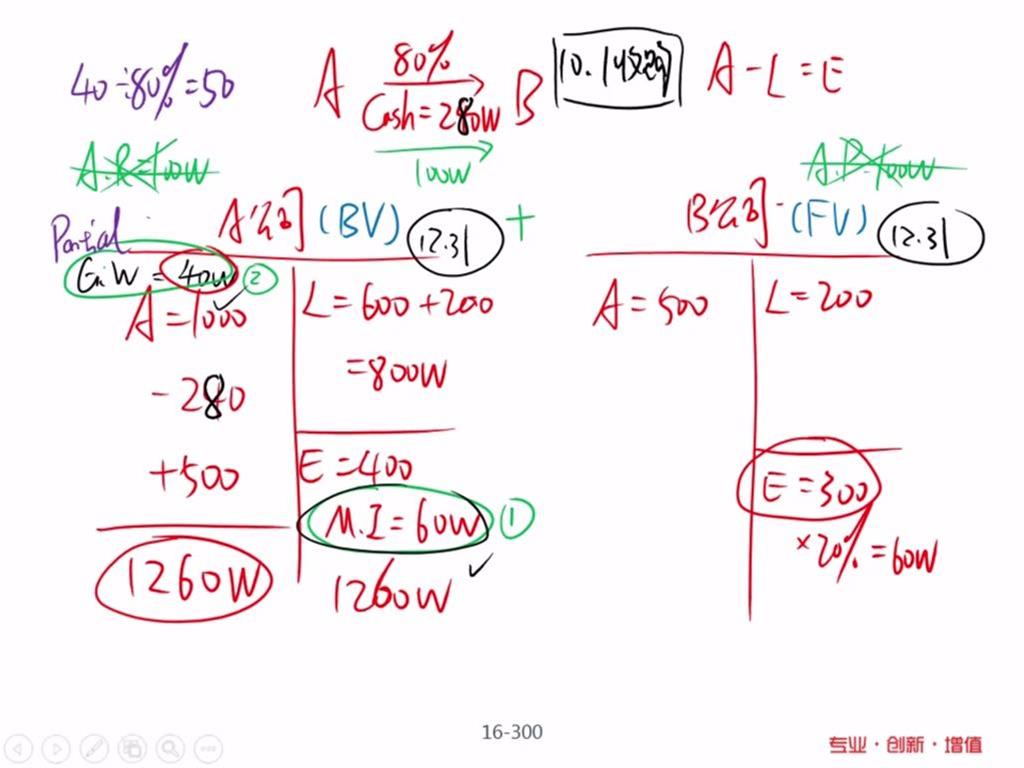 40÷80%=50
A 80% B
Cash=280W
100W
10.1收购
A-L=E
A.R=100W
A.P=100W
Partial
A公司 (BV) 12.31 +
B公司 (FV) 12.31
G.W = 40W ②
A=1000
-280
+500
1260W
L=600+200
=800W
E=400
M.I=60W ①
1260W ✓
A=500
L=200
E=300
×20%=60W
16-300
专业·创新·增值